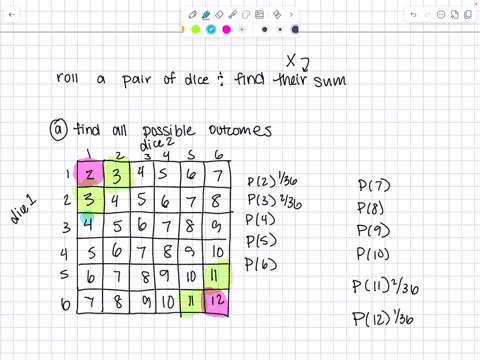 X
roll a pair of dice & find their sum
a find all possible outcomes
dice 2
1 2 3 4 5 6
dice 1
1 2 3 4 5 6 7
2 3 4 5 6 7 8
3 4 5 6 7 8 9
4 5 6 7 8 9 10
5 6 7 8 9 10 11
6 7 8 9 10 11 12
P(2) 1/36
P(3) 2/36
P(4)
P(5)
P(6)
P(7)
P(8)
P(9)
P(10)
P(11) 2/36
P(12) 1/36